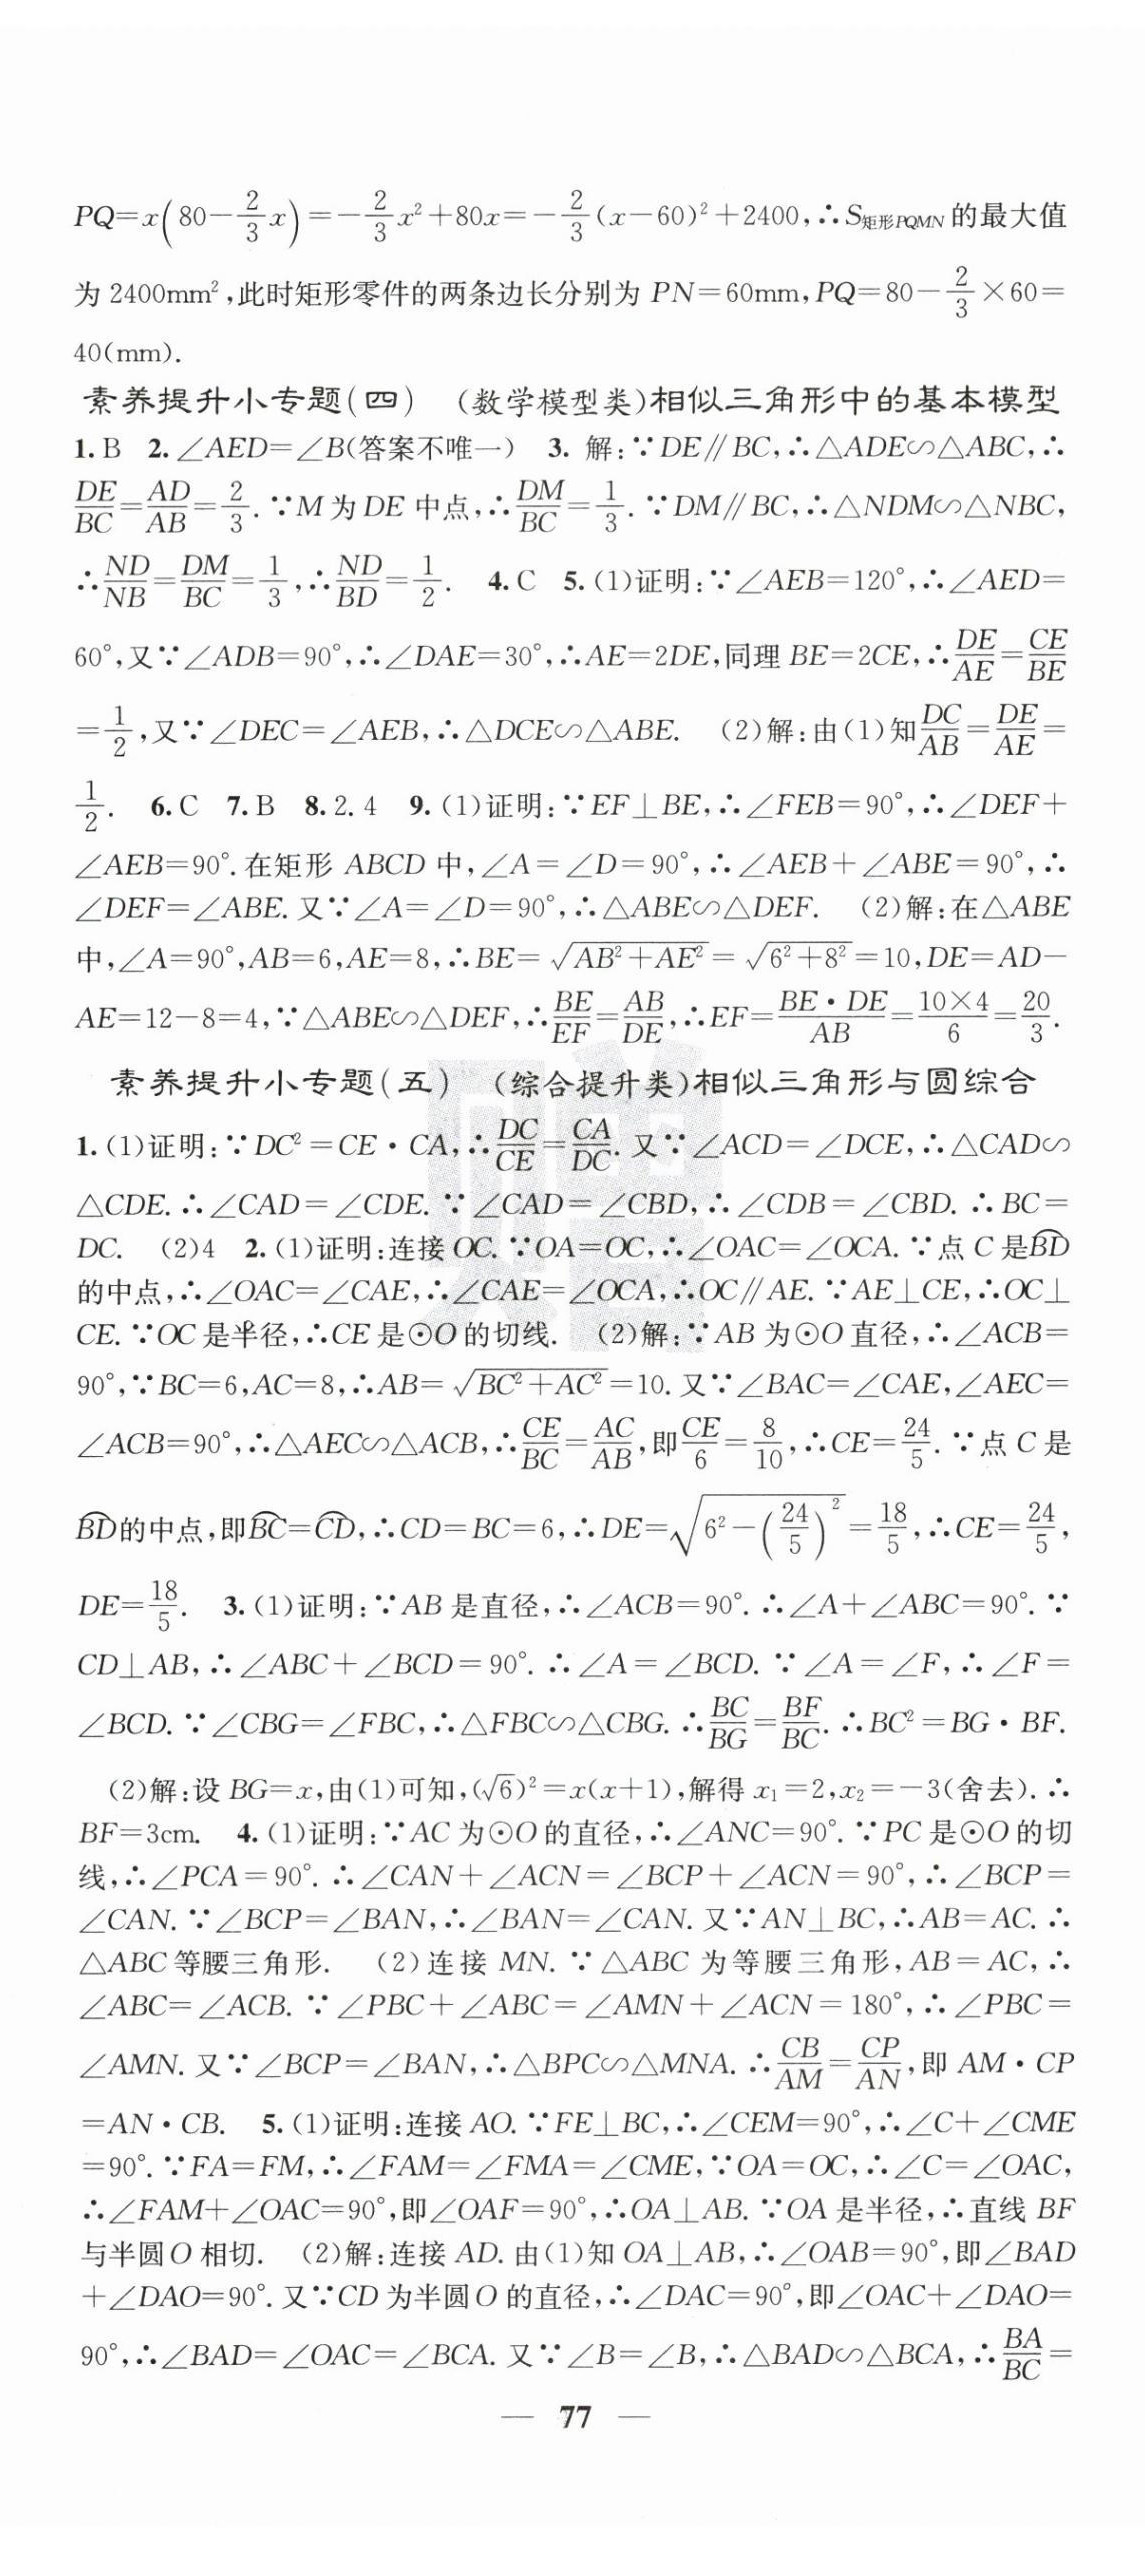 PQ=x(80-2/3x)=-2/3x²+80x=-2/3(x-60)²+2400,∴S矩形PQMN的最大值
为 2400mm²,此时矩形零件的两条边长分别为 PN=60mm,PQ=80-2/3×60=
40(mm).
素养提升小专题(四) (数学模型类)相似三角形中的基本模型
1. B 2. ∠AED=∠B(答案不唯一) 3. 解:∵DE∥BC,∴△ADE∽△ABC,∴
DE/BC=AD/AB=2/3.∵M为DE中点,∴DM/BC=1/3.∵DM∥BC,∴△NDM∽△NBC,
∴ND/NB=DM/BC=1/3,∴ND/BD=1/2. 4. C 5. (1)证明:∵∠AEB=120°,∴∠AED=
60°,又∵∠ADB=90°,∴∠DAE=30°,∴AE=2DE,同理BE=2CE,∴DE/AE=CE/BE
=1/2,又∵∠DEC=∠AEB,∴△DCE∽△ABE. (2)解:由(1)知DC/AB=DE/AE=
1/2. 6. C 7. B 8. 2.4 9. (1)证明:∵EF⊥BE,∴∠FEB=90°,∴∠DEF+
∠AEB=90°.在矩形ABCD中,∠A=∠D=90°,∴∠AEB+∠ABE=90°,∴
∠DEF=∠ABE.又∵∠A=∠D=90°,∴△ABE∽△DEF. (2)解:在△ABE
中,∠A=90°,AB=6,AE=8,∴BE=√(AB²+AE²)=√(6²+8²)=10,DE=AD-
AE=12-8=4,∵△ABE∽△DEF,∴BE/EF=AB/DE,∴EF=BE·DE/AB=10×4/6=20/3.
素养提升小专题(五) (综合提升类)相似三角形与圆综合
1. (1)证明:∵DC²=CE·CA,∴DC/CE=CA/DC.又∵∠ACD=∠DCE,∴△CAD∽
△CDE.∴∠CAD=∠CDE.∵∠CAD=∠CBD,∴∠CDB=∠CBD.∴BC=
DC. (2)4 2. (1)证明:连接OC.∵OA=OC,∴∠OAC=∠OCA.∵点C是BD⌒
的中点,∴∠OAC=∠CAE,∴∠CAE=∠OCA,∴OC∥AE.∵AE⊥CE,∴OC⊥
CE.∵OC是半径,∴CE是⊙O的切线. (2)解:∵AB为⊙O直径,∴∠ACB=
90°,∵BC=6,AC=8,∴AB=√(BC²+AC²)=10.又∵∠BAC=∠CAE,∠AEC=
∠ACB=90°,∴△AEC∽△ACB,∴CE/BC=AC/AB,即CE/6=8/10,∴CE=24/5.∵点C是
BD⌒的中点,即BC⌒=CD⌒,∴CD=BC=6,∴DE=√(6²-(24/5)²)=18/5,∴CE=24/5,
DE=18/5. 3. (1)证明:∵AB是直径,∴∠ACB=90°.∴∠A+∠ABC=90°.∵
CD⊥AB,∴∠ABC+∠BCD=90°.∴∠A=∠BCD.∵∠A=∠F,∴∠F=
∠BCD.∵∠CBG=∠FBC,∴△FBC∽△CBG.∴BC/BG=BF/BC.∴BC²=BG·BF.
(2)解:设BG=x,由(1)可知,(√6)²=x(x+1),解得x₁=2,x₂=-3(舍去).∴
BF=3cm. 4. (1)证明:∵AC为⊙O的直径,∴∠ANC=90°.∵PC是⊙O的切
线,∴∠PCA=90°.∴∠CAN+∠ACN=∠BCP+∠ACN=90°,∴∠BCP=
∠CAN.∵∠BCP=∠BAN,∴∠BAN=∠CAN.又∵AN⊥BC,∴AB=AC.∴
△ABC等腰三角形. (2)连接MN.∵△ABC为等腰三角形,AB=AC,∴
∠ABC=∠ACB.∵∠PBC+∠ABC=∠AMN+∠ACN=180°,∴∠PBC=
∠AMN.又∵∠BCP=∠BAN,∴△BPC∽△MNA.∴CB/AM=CP/AN,即AM·CP
=AN·CB. 5. (1)证明:连接AO.∵FE⊥BC,∴∠CEM=90°,∴∠C+∠CME
=90°.∵FA=FM,∴∠FAM=∠FMA=∠CME,∵OA=OC,∴∠C=∠OAC,
∴∠FAM+∠OAC=90°,即∠OAF=90°,∴OA⊥AB.∵OA是半径,∴直线BF
与半圆O相切. (2)解:连接AD.由(1)知OA⊥AB,∴∠OAB=90°,即∠BAD
+∠DAO=90°.又∵CD为半圆O的直径,∴∠DAC=90°,即∠OAC+∠DAO=
90°,∴∠BAD=∠OAC=∠BCA.又∵∠B=∠B,∴△BAD∽△BCA,∴BA/BC=
— 77 —